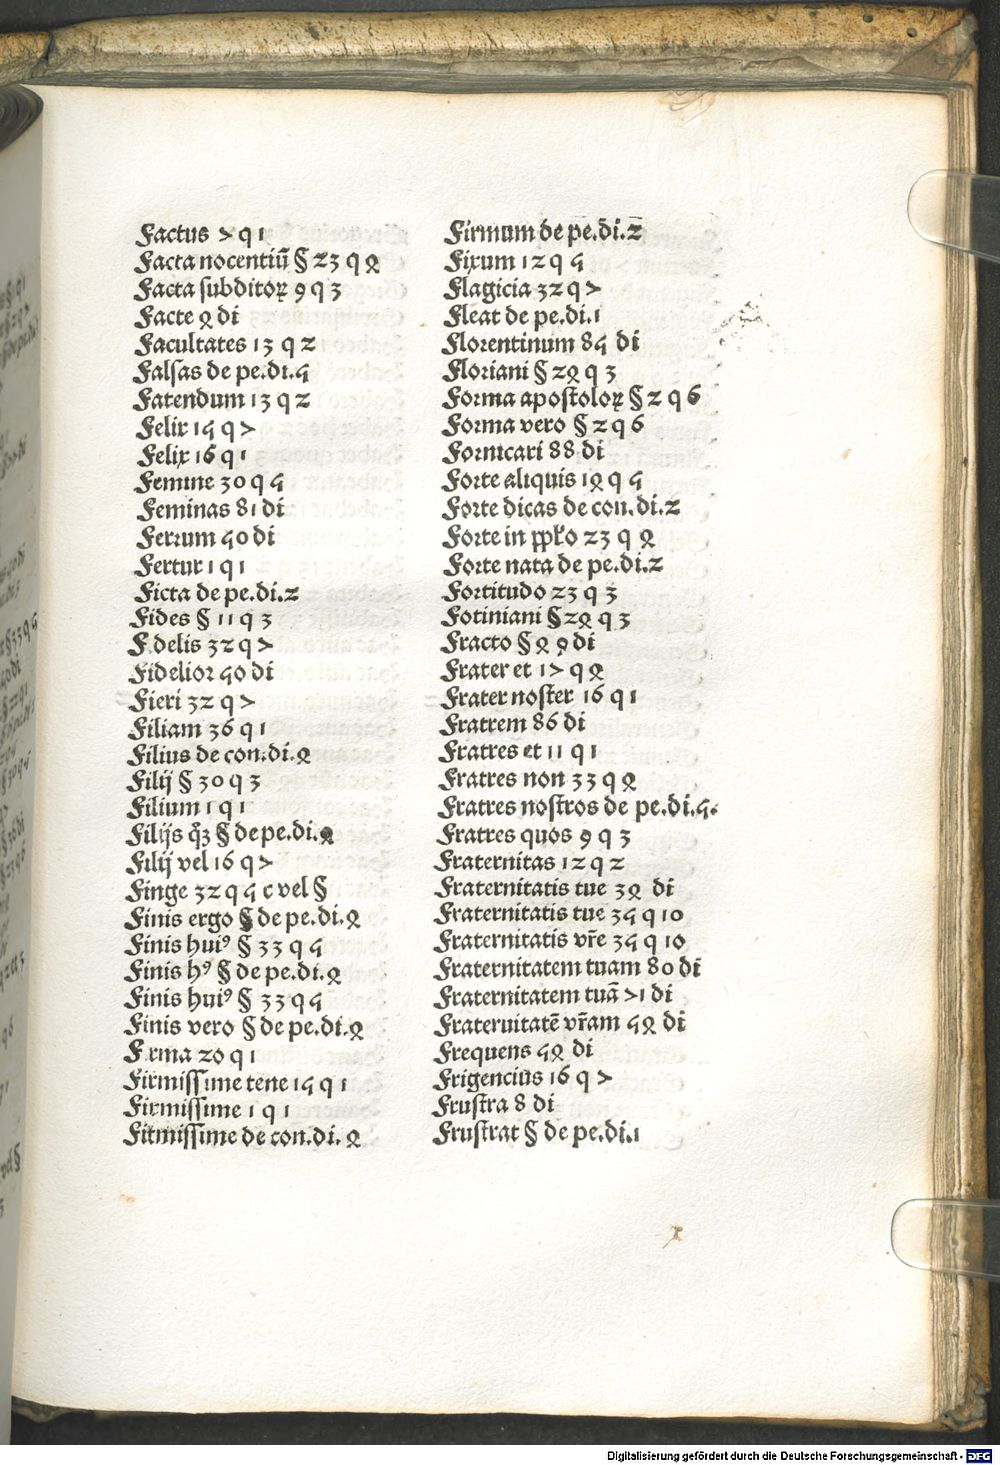 Factus 7 q 1
Facta nocentiũ § 23 q 4
Facta subditoꝝ 9 q 3
Facte 4 di
Facultates 13 q 2
Falsas de pe.di.5
Fatendum 13 q 2
Felix 15 q 7
Felix 16 q 1
Femine 30 q 5
Feminas 81 di
Ferrum 50 di
Fertur 1 q 1
Ficta de pe.di.2
Fides § 11 q 3
F.delis 32 q 7
Fidelior 50 di
Fieri 32 q 7
Filiam 36 q 1
Filius de con.di.4
Filij § 30 q 3
Filium 1 q 1
Filijs q̃ꝫ § de pe.di.4
Filij vel 16 q 7
Finge 32 q 5 c vel §
Finis ergo § de pe.di.4
Finis huiꝰ § 33 q 5
Finis hꝰ § de pe.di.4
Finis huiꝰ § 33 q 5
Finis vero § de pe.di.4
F.rma 20 q 1
Firmissime tene 15 q 1
Firmissime 1 q 1
Firmissime de con.di.4
Firmum de pe.di.2
Fixum 12 q 5
Flagicia 32 q 7
Fleat de pe.di.1
Florentinum 85 di
Floriani § 24 q 3
Forma apostoloꝝ § 2 q 6
Forma vero § 2 q 6
Fornicari 88 di
Forte aliquis 14 q 5
Forte dicas de con.di.2
Forte in pp̄lo 23 q 4
Forte nata de pe.di.2
Fortitudo 23 q 3
Fotiniani § 24 q 3
Fracto § 44 di
Frater et 17 q 4
Frater noster 16 q 1
Fratrem 86 di
Fratres et 11 q 1
Fratres non 33 q 4
Fratres nostros de pe.di.5.
Fratres quos 9 q 3
Fraternitas 12 q 2
Fraternitatis tue 34 di
Fraternitatis tue 35 q 10
Fraternitatis vr̃e 35 q 10
Fraternitatem tuam 80 di
Fraternitatem tuã 71 di
Fraternitatẽ vr̃am 54 di
Frequens 54 di
Frigencius 16 q 7
Frustra 8 di
Frustrat § de pe.di.1
Digitalisierung gefördert durch die Deutsche Forschungsgemeinschaft - DFG